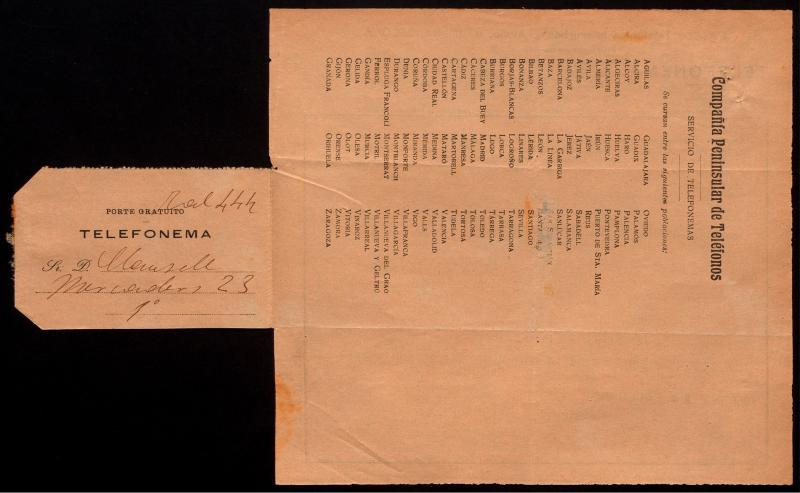 Real 444
PORTE GRATUITO
TELEFONEMA
Sr. D.
Mercaders 23
1º
Compañía Peninsular de Teléfonos
SERVICIO DE TELEFONEMAS
Se cursan entre las siguientes poblaciones:
AGUILAS GUADALAJARA OVIEDO
ALCIRA GUADIX PALAMÓS
ALCOY HARO PALENCIA
ALGECIRAS HUELVA PAMPLONA
ALICANTE HUESCA PONTEVEDRA
ALMERÍA IRÚN PUERTO DE STA. MARÍA
ÁVILA JAÉN REUS
AVILÉS JÁTIVA SABADELL
BADAJOZ JEREZ SALAMANCA
BARCELONA LA GARRIGA SANLÚCAR
BAZA LA LINEA SAN SEBASTIÁN
BETANZOS LEÓN SANTANDER
BILBAO LÉRIDA SANTIAGO
BONANZA LINARES SEVILLA
BORJAS-BLANCAS LOGROÑO TARRAGONA
BURGOS LORCA TARRASA
BURRIANA LUGO TÁRREGA
CABEZA DEL BUEY MADRID TOLEDO
CÁCERES MÁLAGA TOLOSA
CÁDIZ MANRESA TORTOSA
CARTAGENA MARTORELL TUDELA
CASTELLÓN MATARÓ VALENCIA
CIUDAD REAL MEDINA VALLADOLID
CÓRDOBA MÉRIDA VALLS
CORUÑA MIRANDA VIGO
DENIA MONFORTE VILLAFRANCA
DURANGO MONTBLANCH VILLAGARCÍA
ESPLUGA FRANCOLÍ MONTSERRAT VILLANUEVA DEL GRAO
FERROL MOTRIL VILLANUEVA Y GELTRÚ
GANDÍA MURCIA VILLARREAL
GELIDA OLESA VINAROZ
GERONA OLOT VITORIA
GIJÓN ORENSE ZAMORA
GRANADA ORIHUELA ZARAGOZA